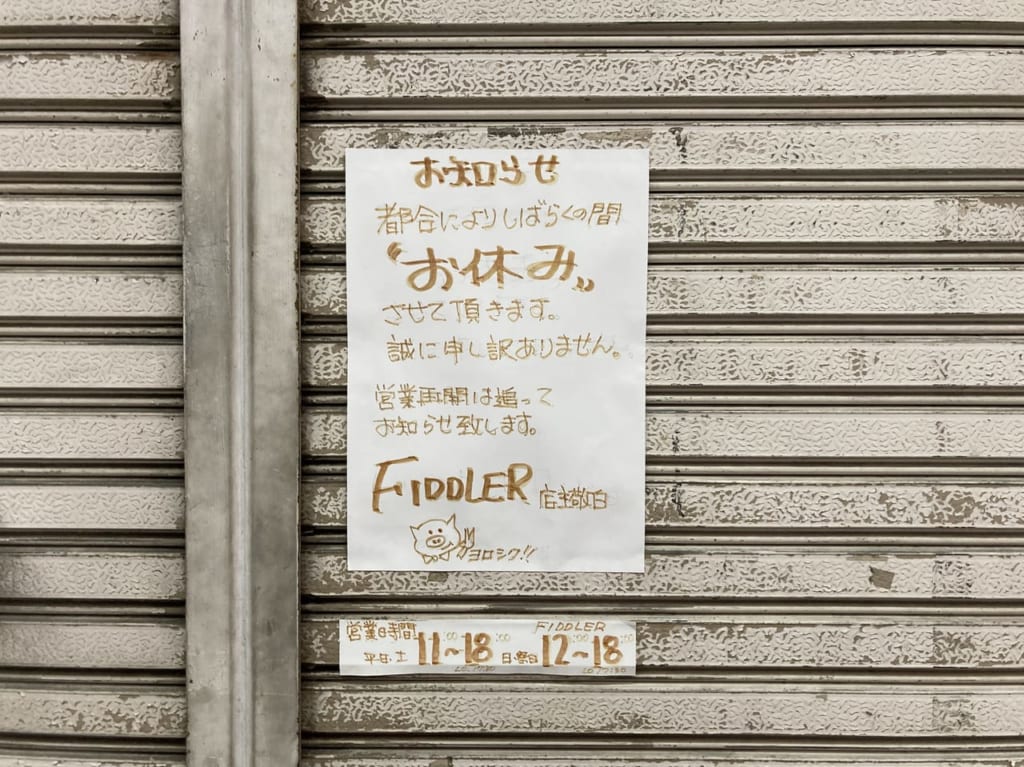 お知らせ
都合によりしばらくの間
〝お休み〟
させて頂きます。
誠に申し訳ありません。
営業再開は追って
お知らせ致します。
FIDDLER 店主敬白
ヨロシク!!
営業時間 FIDDLER
平日・土 11:00~18:00 日・祭日 12:00~18:00
LO 17:30 LO 17:30